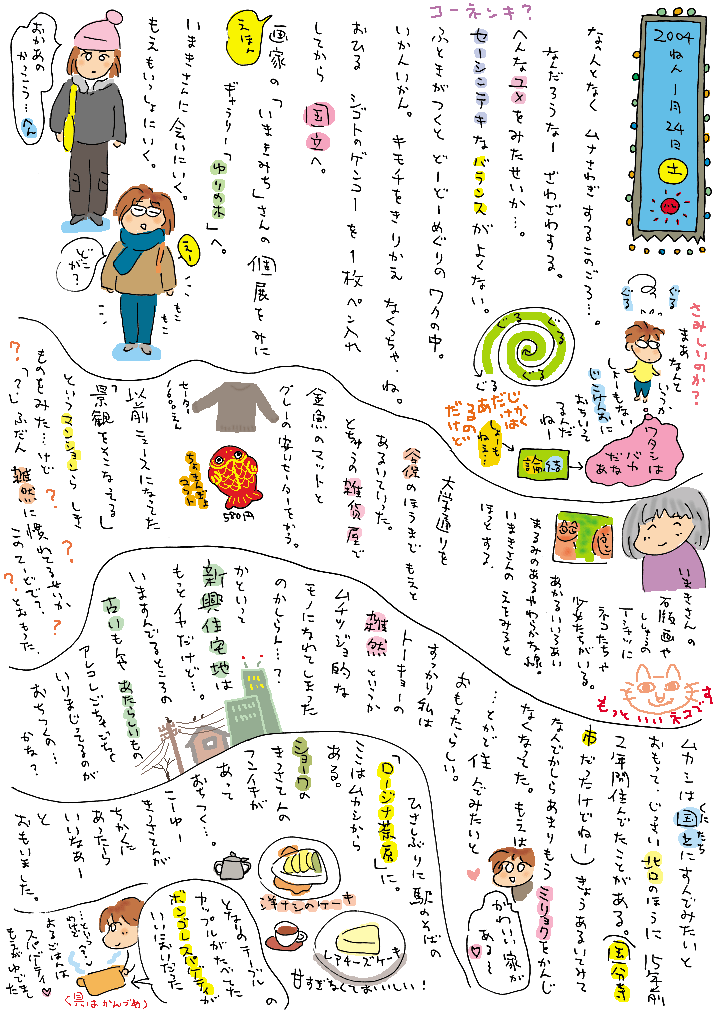 2004ねん 1月24日 土
コーネンキ?
なんとなく ムナさわぎするこのごろ…。
なんだろうなー ざわざわする。
へんなユメをみたせいか…。
セーシンテキなバランスがよくない。
ふときがつくと どーどーめぐりのワクの中。
いかんいかん。キモチをきりかえ なくっちゃ・ね。
おひる シゴトのゲンコーを1枚ペン入れ
してから 国立へ。
画家の「いまきみち」さんの個展をみに
えほん
ギャラリー「ゆりの木」へ。
いまきさんに会いにいく。
もえもいっしょにいく。
おかあの
かっこう…へん
えー
どこが?
もこ
もこ
ぐる
ぐる
さみしいのか?
まあ
なんと
いうか
しょーもない
じこけんおに
おちいって
るんだ
ねー
ワタシは
バカ
だなあ
結論
しょーも
ねえ…
ぐる
ぐる
ぐる
ぐる
いまきさんの
石版画や
ししゅうの
Tシャツに
ネコたちや
少女たちがいる。
あかるいいろあい
まるみのあるやわらかな線。
いまきさんのえをみると
ほっとする。
もっといいネコです
大学通りを
谷保のほうまでもえと
あるいていった。
とちゅうの雑貨屋で
金魚のマットと
グレーの安いセーターをかう。
セーター
580円
以前ニュースになってた
「景観をそこなってる」
というマンションらしき
ものをみた…けど
「?」ふだん 雑然に慣れてるせいか
このていどで?
とおもった。
?
?
?
?
ムカシは国立にすんでみたいと
くにたち
おもって、じっさい 北口のほうに 15年前
2年間住んでたことがある。(国分寺
市だったけどねー)きょうあるいてみて
なんでかしらあまりもうミリョクをかんじ
なくなってた。もえは
かわいい家が
ある〜
…とかで住んでみたいと
おもったらしい。
すっかり私は
トーキョーの
雑然というか
ムチツジョ的な
モノになれてしまった
のかしらん…?
かといって
新興住宅地は
もっとイヤだけど…。
いますんでるところの
古いもんやあたらしいもの
アレコレごちゃごちゃと
いりまじってるのが
おちつくの…
かな?
ひさしぶりに駅のそばの
「ロージナ茶房」に。
ここはムカシから
ある。
ショーワの
きっさてんの
フンイキが
あって
おちつく…。
こーゆー
きっさてんが
ちかくに
あったら
いいなあー
と
おもいました。
洋ナシのケーキ
レアチーズケーキ
甘すぎなくておいしい!
となりのテーブルの
カップルがたべてた
ボンゴレスパゲティが
いいにおいだった
よるごはんは
スパゲティ
もえがゆでました
(具はかんづめ)